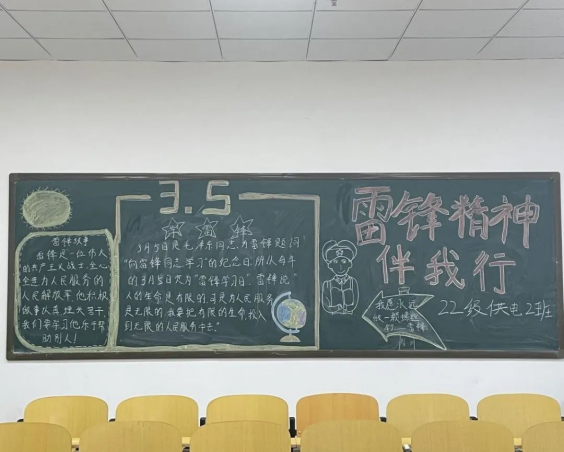 雷锋故事
雷锋是一位伟人
的共产主义战士,全心
全意为人民服务的
人民解放军,他积极
做事从
我们要学习他乐于帮
助别人!
3.5
学 雷 锋
3月5日是毛泽东同志为雷锋题词
"向雷锋同志学习"的纪念日,所以每年
的3月5日定为"雷锋学习日",雷锋说"
人的生命是有限的,可是为人民服务
是无限的,我要把有限的生命,投入
到无限的为人民服务中去。"
雷锋精神
伴我行
22级供电2班
我愿永远
做一颗螺丝
钉——雷锋